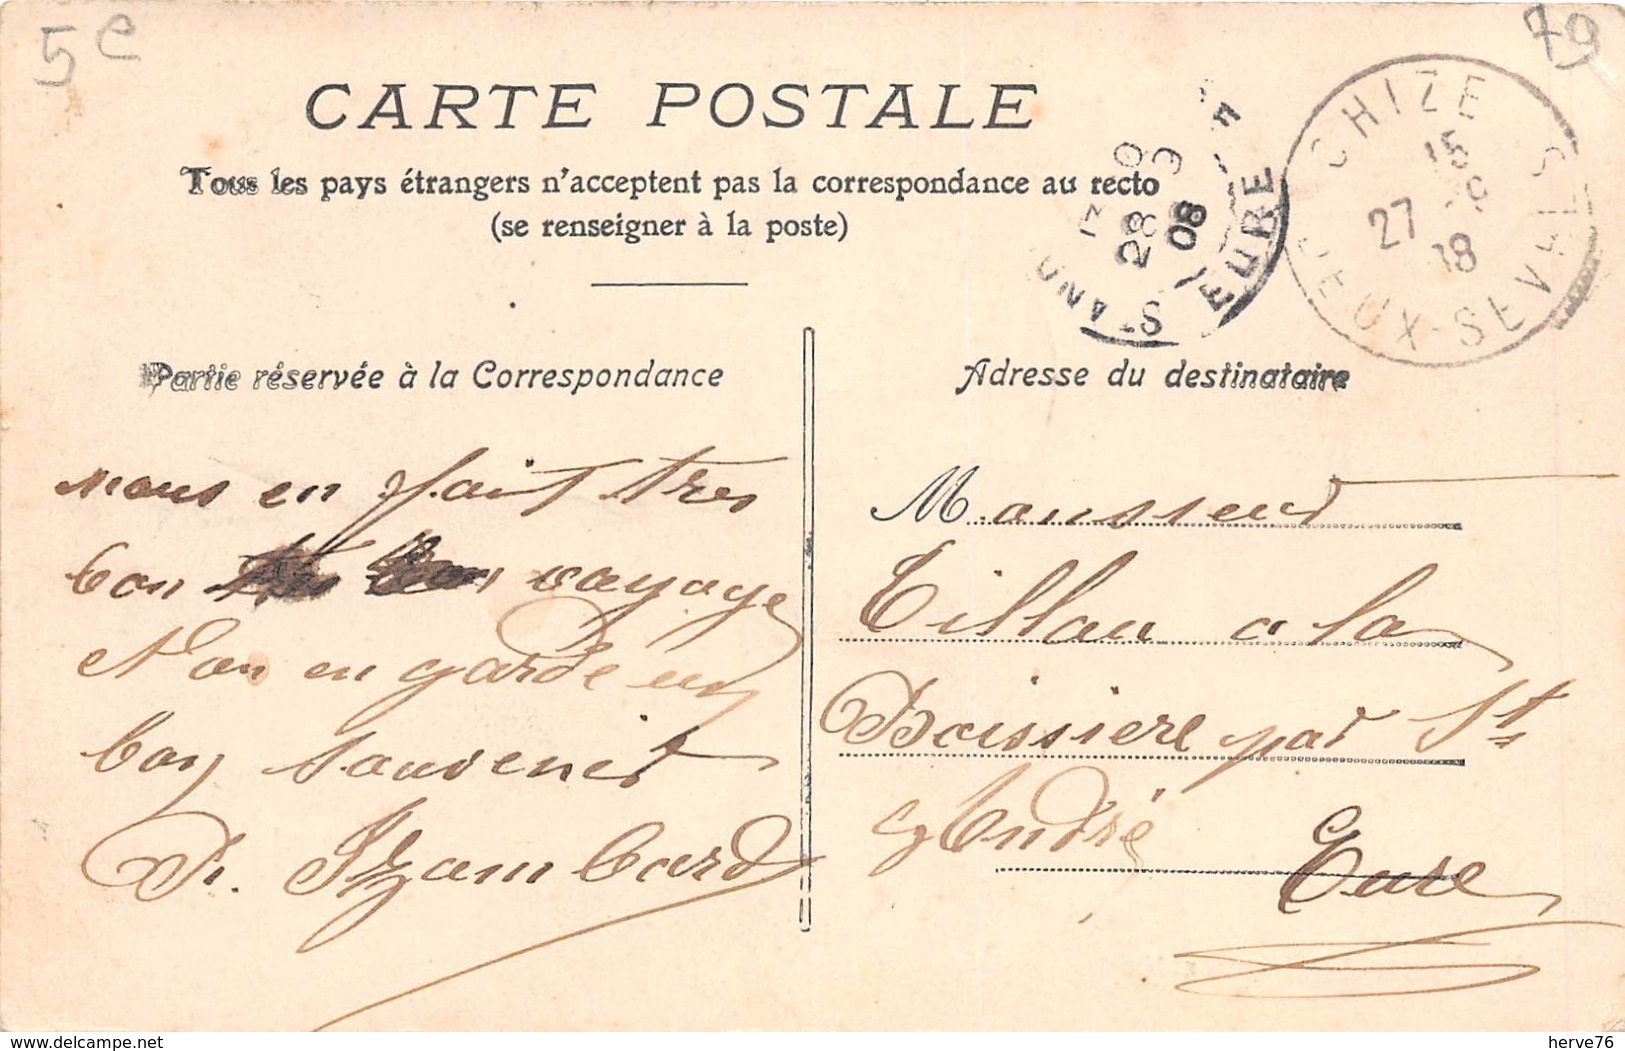 5e
79
CARTE POSTALE
Tous les pays étrangers n'acceptent pas la correspondance au recto
(se renseigner à la poste)
CHIZE
15
27 -9
08
DEUX-SEVRES
28 9
08
EURE
Partie réservée à la Correspondance
Adresse du destinataire
nous en fait tres
bon voyage
Non en garde un
bon souvenir
P. Izambard
Monsieur
Tillau a la
Boissiere par St
André
Eure
delcampe.net
herve76